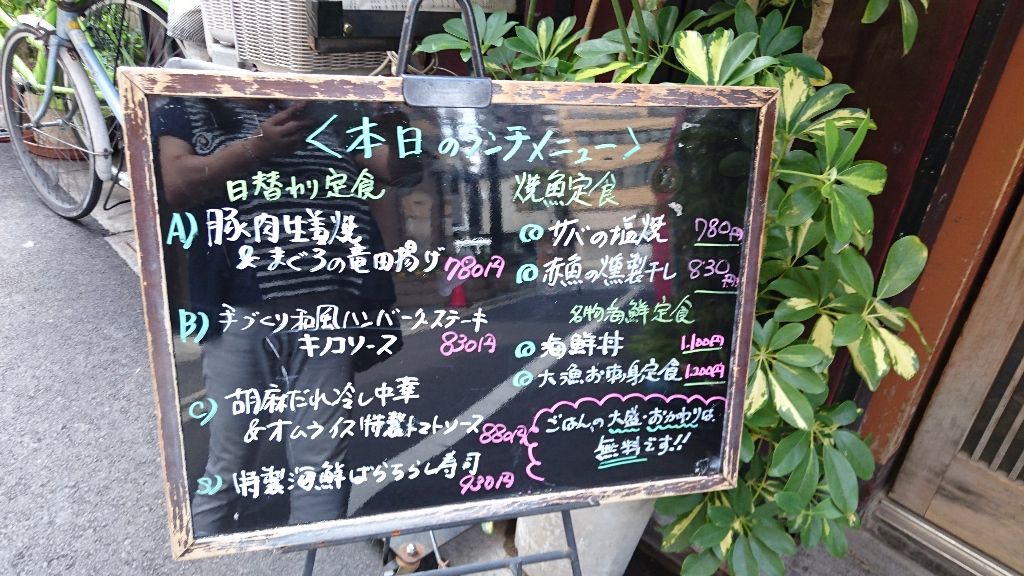 <本日のランチメニュー>
日替わり定食
A) 豚肉生姜焼
&まぐろの竜田揚げ 780円
B) 手づくり和風ハンバーグステーキ
キノコソース 830円
C) 胡麻だれ冷し中華
&オムライス特製トマトソース 880円
D) 特製海鮮ばらちらし寿司
930円
焼魚定食
◎ サバの塩焼 780円
◎ 赤魚の燻製干し 830円
名物海鮮定食
◎ 海鮮丼 1,100円
◎ 大漁お刺身定食 1,200円
ごはんの大盛おかわりは、
無料です!!